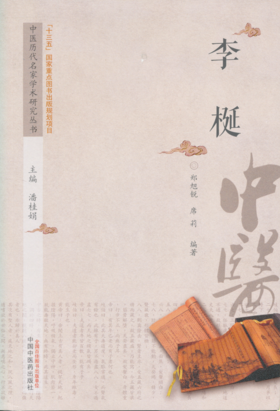 "十三五"国家重点图书出版规划项目
中医历代名家学术研究丛书
主编 潘桂娟
李梴
郑旭锐 席莉 编著
中醫
中国中医药出版社